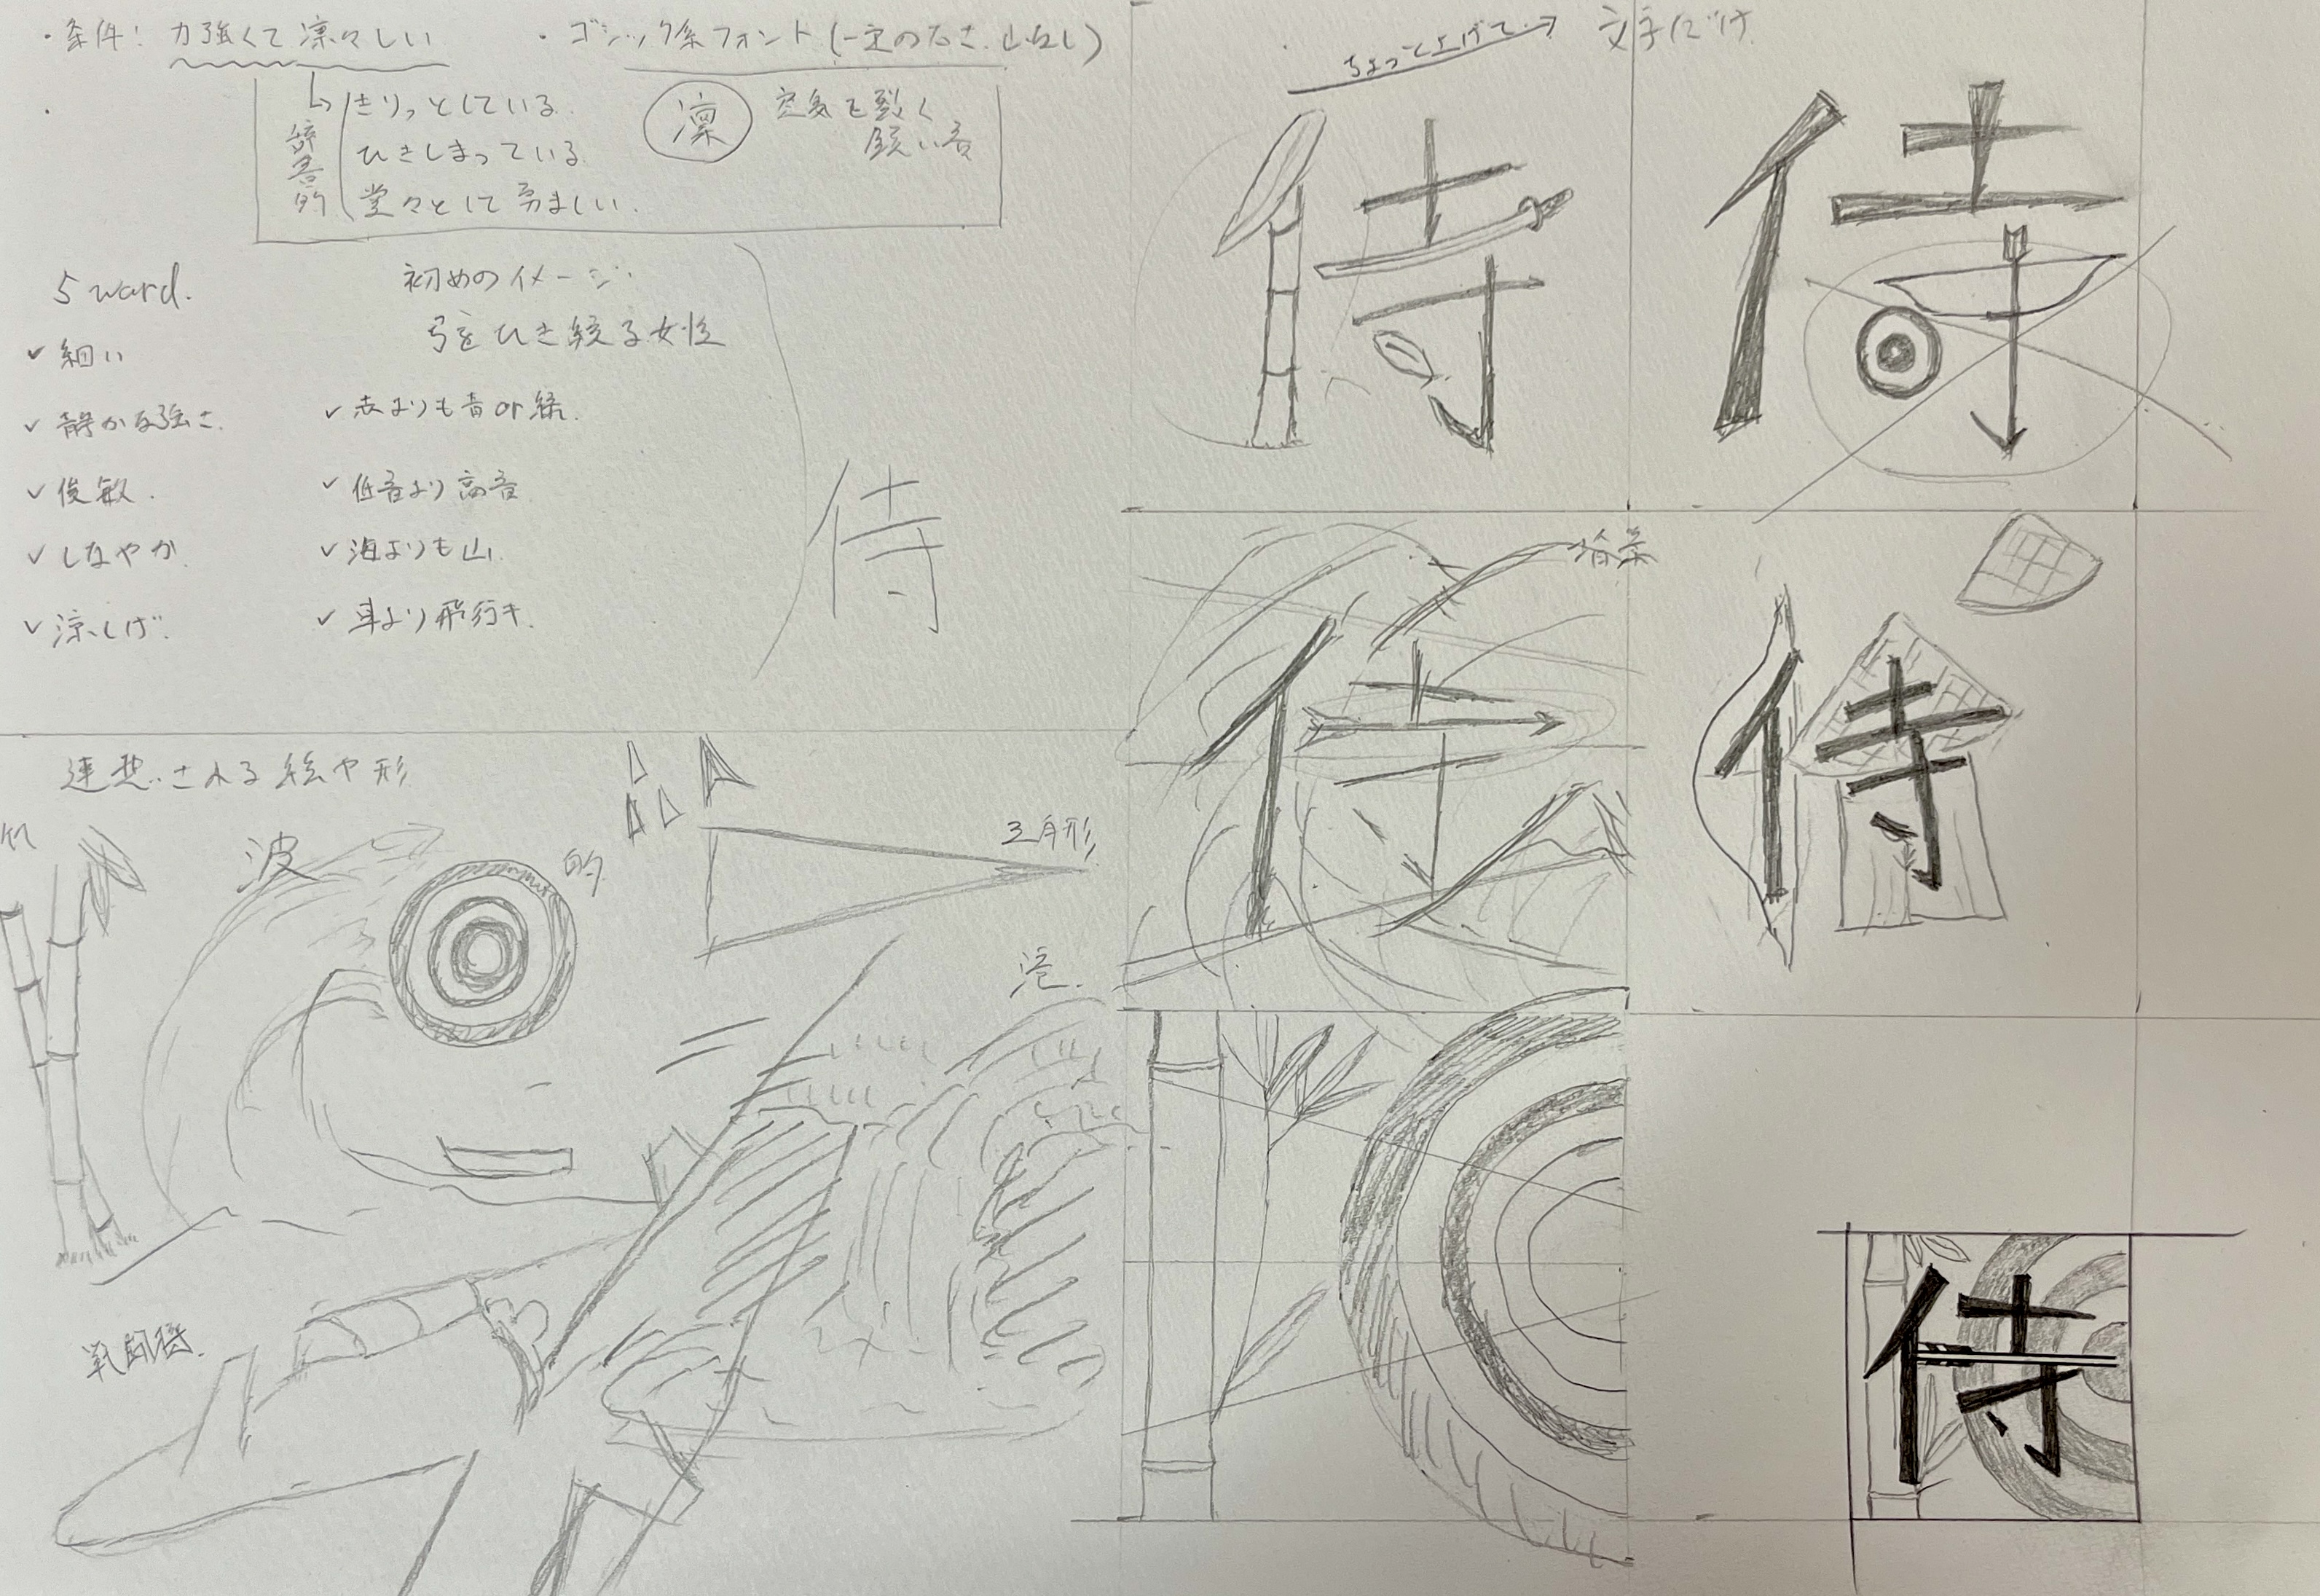 ・条件! 力強くて凛々しい
・ゴシック系フォント(一定の太さ.山なし)
きりっとしている
ひきしまっている
堂々として勇ましい.
辞書的
凛
空気を裂く
鋭い音
5 ward.
✓細い
✓静かな強さ.
✓俊敏.
✓しなやか
✓涼しげ.
初めのイメージ
弓をひき絞る女性
✓赤よりも青or緑.
✓低音より高音
✓海よりも山.
✓車より飛行キ.
侍
連想される絵や形
波
的
三角形
滝.
戦闘機.
ちょっと上げて→
文字だけ
侍
侍
背景
侍
侍
侍